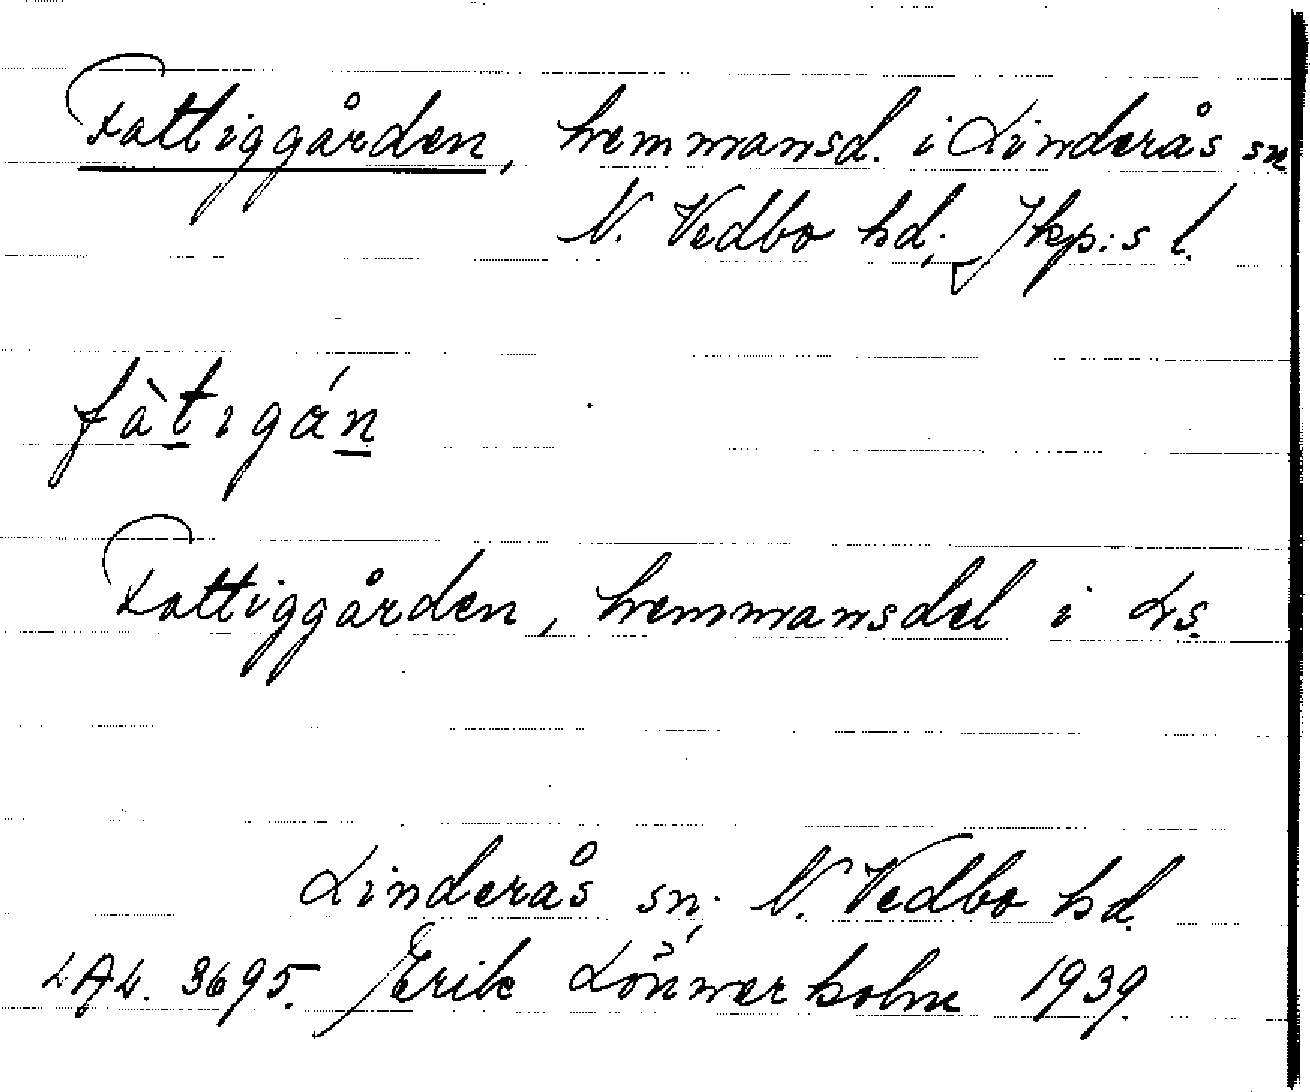 Fattiggården, hemmansd. i Linderås sn
N. Vedbo hd; Jkp:s l.
fàtigán
Fattiggården, hemmansdel i Ls.
Linderås sn. N. Vedbo hd.
LAL. 3695. Erik Lönnerholm 1939.